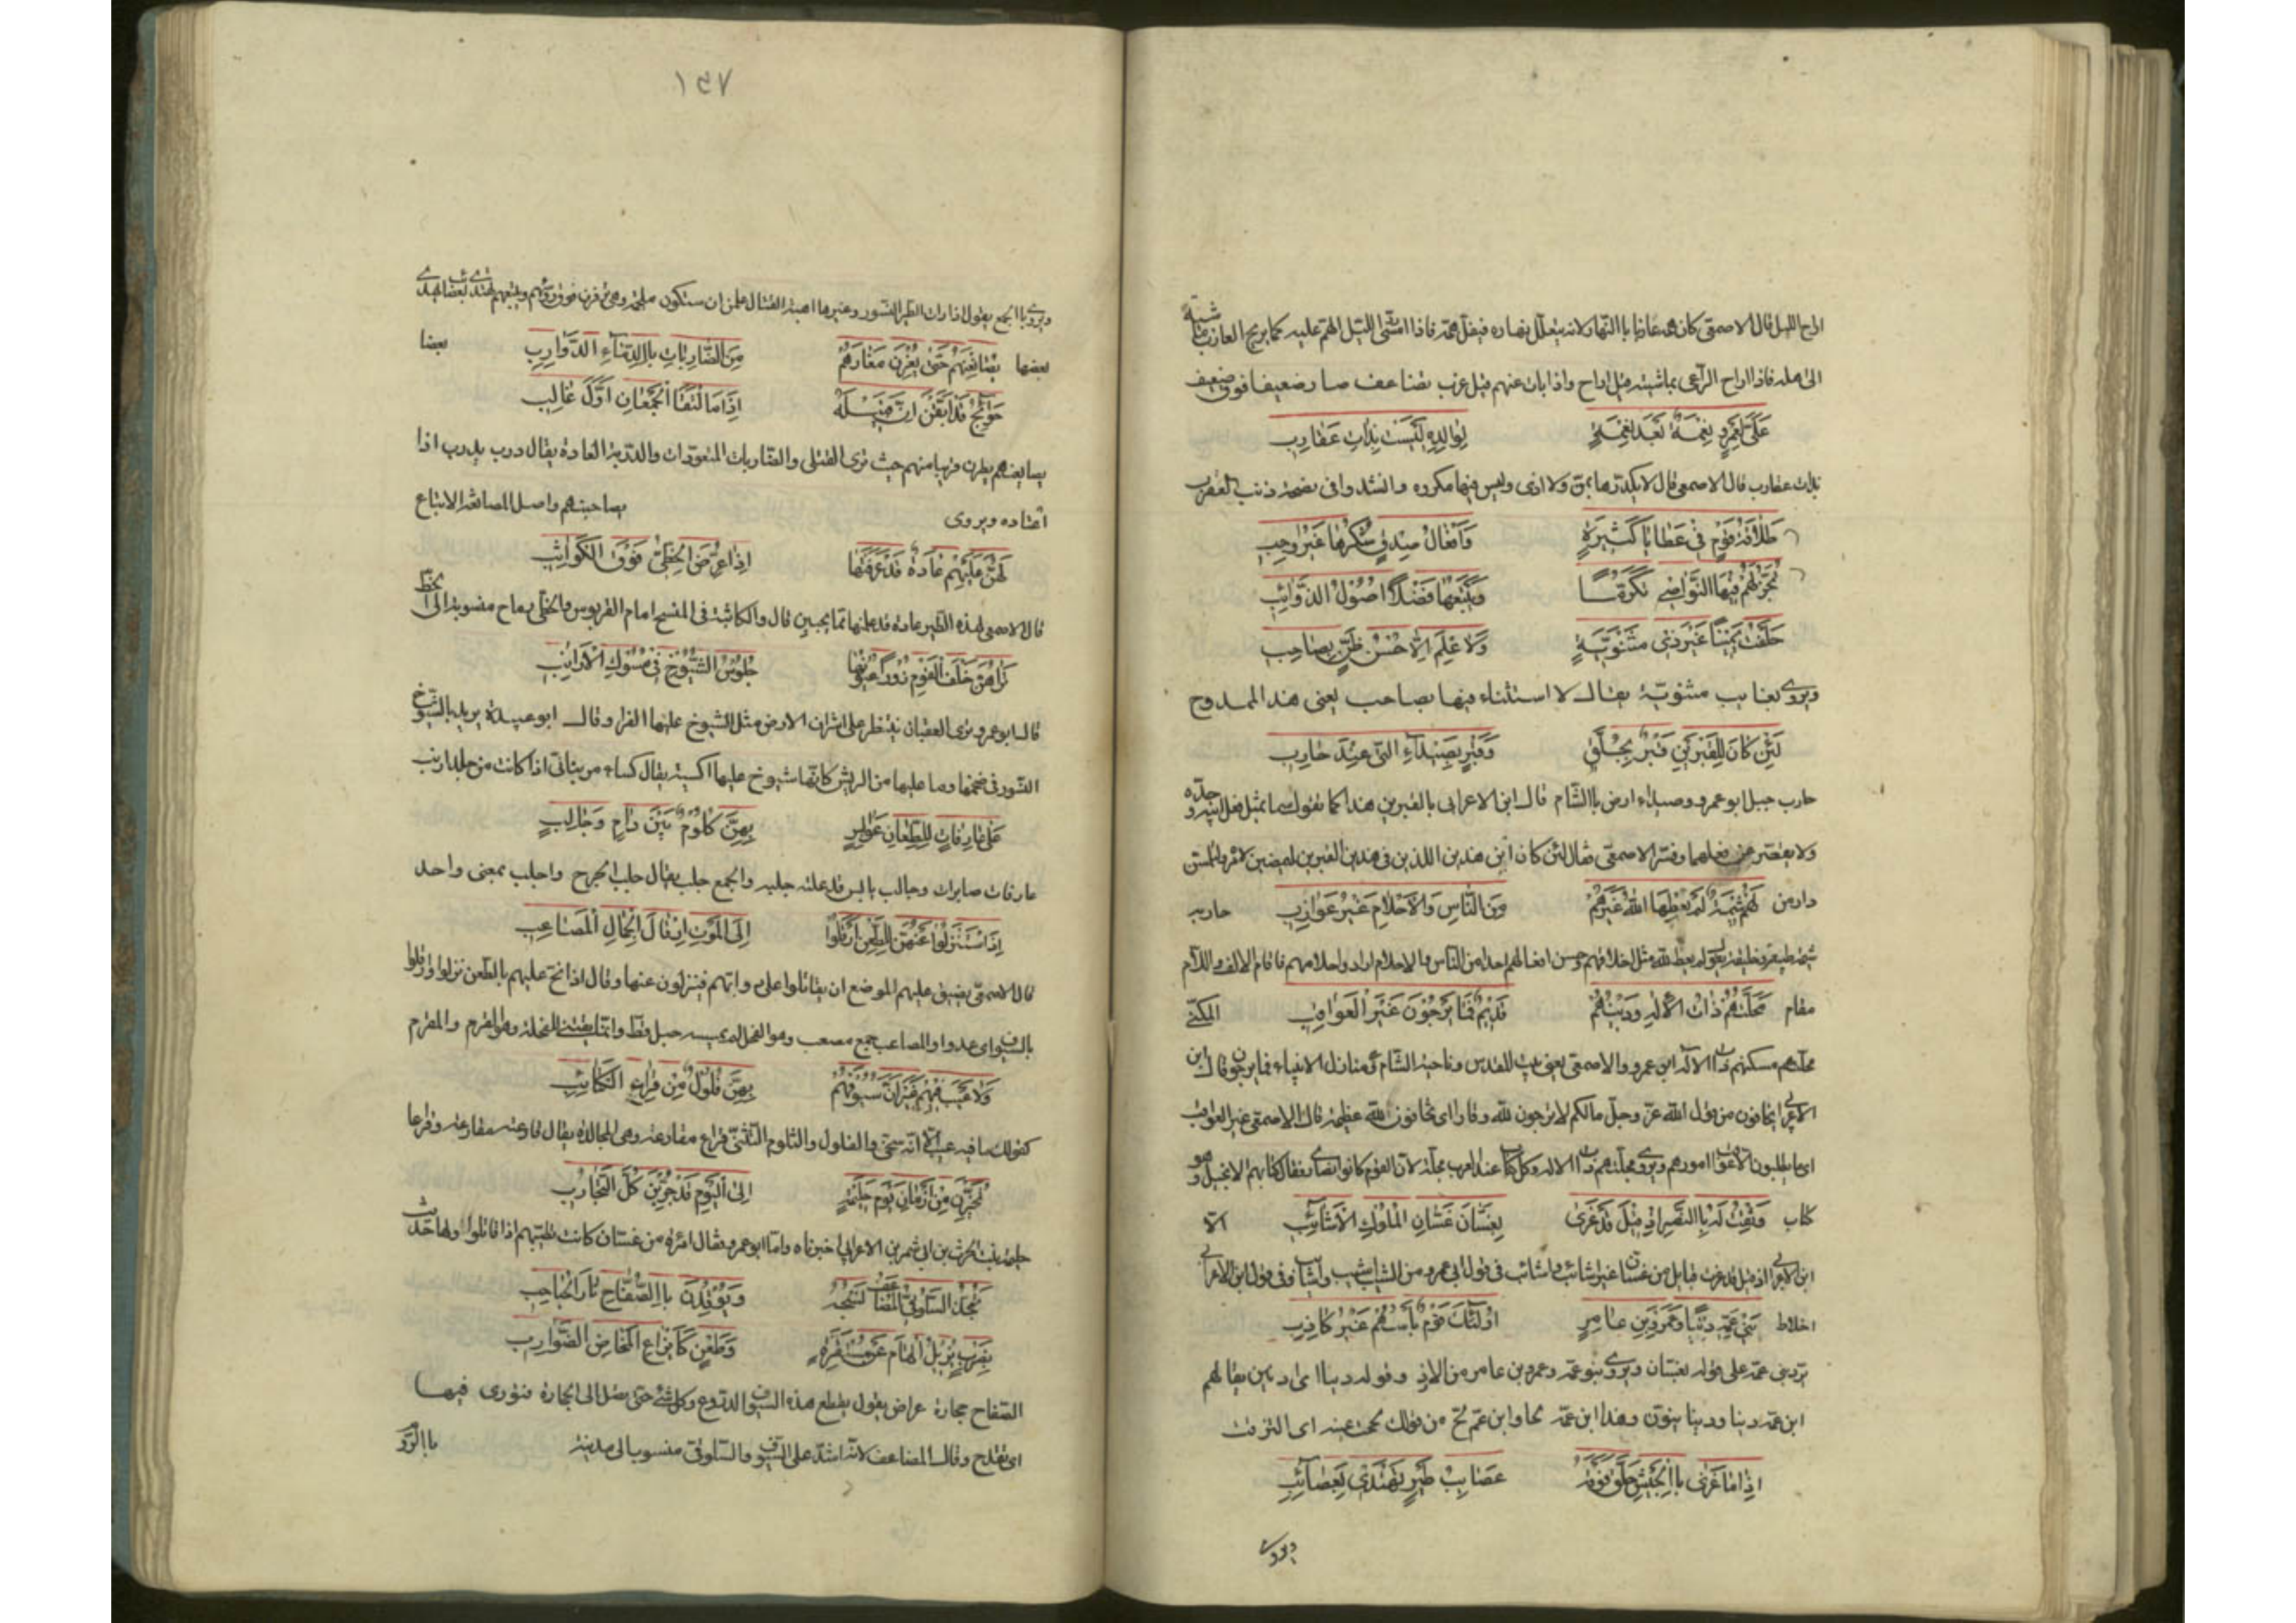 اراح الليل قال الاصمعى كان همه عازبا بالنهار لانه يتعلل نهاره فيقل همه فاذا امسى الليل اهتم عليه كما يريح العازب ماشيته
الى اهله فاذا اراح الراعى بماشيته قيل اراح واذا بات عنهم قيل عزب تضاعف صار ضعيفا فوق ضعيف
عَلَىَّ لِعَمْرٍو نِعْمَةٌ بَعْدَ نِعْمَةٍ لِوَالِدِهِ لَيْسَتْ بِذَاتِ عَقَارِبِ
بذات عقارب قال الاصمعى قال لا يكدرها بمن ولا اذى وليس فيها مكروه وانشد وافى بضجة ذنب العقرب
طَلَاقَةُ قَوْمٍ فِى عَطَايَا كَثِيرَةٍ وَاَفْعَالُ صِدْقٍ شُكْرُهَا غَيْرُ وَاجِبِ
تُجَرُّ لَهُمْ فِيهَا النَّوَاصِى تَكَرُّمًا وَيَتْبَعُهَا فَضْلًا اُصُولُ الذَّوَائِبِ
حَلَفْتُ يَمِينًا غَيْرَ ذِى مَثْنَوِيَّةٍ وَلَا عِلْمَ اِلَّا حُسْنُ ظَنٍّ بِصَاحِبِ
ويروى بغايب مثنوية يقال لا استثناء فيها بصاحب يعنى هذا الممدوح
لَئِنْ كَانَ لِلْقَبْرَيْنِ قَبْرٍ بِجِلَّقٍ وَقَبْرٍ بِصَيْدَاءِ الَّتِى عِنْدَ حَارِبِ
حارب جبل ابو عمرو وصيداء ارض بالشام قال ابن الاعرابى بالقبرين هذا كما تقول سما بمثل فعل ابيه وجده
ولا يقصر عن فعلهما وفسر الاصمعى فقال لئن كان ابن هذين اللذين فى هذين القبرين ليمضين لامره وليلتمسن
دار من لَهُمْ شِيمَةٌ لَمْ يُعْطِهَا اللّٰهُ غَيْرَهُمْ مِنَ النَّاسِ وَالْاَحْلَامُ غَيْرُ عَوَازِبِ حاربه
شيمة طبيعة وخليقة يقول لم يعط الله مثل اخلاقهم وحسن افعالهم احدا من الناس والاحلام اراد واحلامهم فاقام الالف واللام
مقام مَحَلَّتُهُمْ ذَاتُ الْاِلٰهِ وَدِينُهُمْ قَدِيمٌ فَمَا يَرْجُونَ غَيْرَ الْعَوَاقِبِ المكنى
محلتهم مسكنهم ذات الاله ابو عمرو والاصمعى يعنى بيت المقدس وناحية الشام وهى منازل الانبياء فما يرجون قال ابن
الاعرابى يخافون من قول الله عز وجل مالكم لا ترجون لله وقارا اى تخافون لله عظمة قال الاصمعى غير العواقب
اى ما يطلبون الا عواقب امورهم ويروى مجلتهم ذات الاله وكل كتاب عند العرب مجلة لان القوم كانوا نصارى فقال كتابهم الانجيل وهو
كتاب وَثِقْتُ لَهُ بِالنَّصْرِ اِذْ قِيلَ قَدْ غَزَى بِغَسَّانَ غَسَّانِ الْمُلُوكِ الْاَشَائِبِ الله
ابن الاعرابى اذ قيل قد غزت قبايل من غسان غير اشائب واشائب فى قول ابى عمرو من الشباب شب واشاب وفى قول ابن الاعرابى
اخلاط بَنِى عَمِّهِ دِنْيَا وَعَمْرِو بْنِ عَامِرٍ اُولٰئِكَ قَوْمٌ بَأْسُهُمْ غَيْرُ كَاذِبِ
ترد بنى عمه على قوله بغسان ويروى بنو عمه وعمرو بن عامر من الازد وقوله دنيا اى ادنين يقال هم
ابن عمه دنيا ودنيا بنون وهذا ابن عمه لحا وابن عم لح من قولك لححت عينه اى التزقت
اِذَا مَا غَزَى بِالْجَيْشِ حَلَّقَ فَوْقَهُ عَصَائِبُ طَيْرٍ تَهْتَدِى بِعَصَائِبِ
ويروى
١٣٧
ويروى بالجمع يقول اذا رات الطير النسور وغيرها اهبة القتال علمن ان ستكون ملحمة وهى ترفرف فوق رؤسهم ويتبعهم تهتدى يهدى بعضها
بعضها يُصَانِعْنَهُمْ حَتَّى يُغِرْنَ مُغَارَهُمْ مِنَ الضَّارِيَاتِ بِالدِّمَاءِ الدَّوَارِبِ بعضا
جَوَانِحَ قَدْ اَيْقَنَّ اَنَّ قَبِيلَهُ اِذَا مَا الْتَقَا الْجَمْعَانِ اَوَّلُ غَالِبِ
يصانعنهم يطرن قريبا منهم حيث ترى القتلى والضاريات المتعودات والدربة العادة يقال درب يدرب اذا
اعتاده ويروى يصاحبنهم واصل المصانعة الاتباع
لَهُنَّ عَلَيْهِمْ عَادَةٌ قَدْ عَرَفْنَهَا اِذَا عُرِّضَ الْخَطِّىُّ فَوْقَ الْكَوَاثِبِ
قال الاصمعى لهذه الطير عادة قد علمنها مما يجبين قال والكاثبة فى المنسج امام القربوس والخطى رماح منسوبة الى الخط
تَرَاهُنَّ خَلْفَ الْقَوْمِ زُورًا عُيُونُهَا جُلُوسَ الشُّيُوخِ فِى مُسُوكِ الْاَرَانِبِ
قال ابو عمرو ترى العقبان تنتظر على اشراف الارض مثل الشيوخ عليها الفرا وقال ابو عبيدة يريد بالشيوخ
النسور فى ضخمها وما عليها من الريش كانها شيوخ عليها اكسية يقال كساء مرنبانى اذا كانت من جلد ارنب
عَلَى عَارِفَاتٍ لِلطِّعَانِ عَوَابِسٍ بِهِنَّ كُلُومٌ بَيْنَ دَامٍ وَجَالِبِ
عارفات صابرات وجالب يابس قد علته جلبه والجمع جلب يقال جلب الجرح واجلب بمعنى واحد
اِذَا اسْتُنْزِلُوا عَنْهُنَّ لِلطَّعْنِ اَرْقَلُوا اِلَى الْمَوْتِ اِرْقَالَ الْجِمَالِ الْمَصَاعِبِ
قال الاصمعى يضيق عليهم الموضع ان يقاتلوا على دوابهم فينزلون عنها وقال اذا نح عليهم بالطعن نزلوا وارقلوا
بالسيوف اى عدوا والمصاعب جمع مصعب وهو الفحل لم يمسسه حبل قط وانما يقتنى للفحلة وهو المقرم والمقرم
وَلَا عَيْبَ فِيهِمْ غَيْرَ اَنَّ سُيُوفَهُمْ بِهِنَّ فُلُولٌ مِنْ قِرَاعِ الْكَتَائِبِ
كقولك ما فيه عيب الا انه سخى والفلول والثلوم التثنى قراع مقارعة وهى المجالدة يقال قارعته مقارعة وقراعا
تُخُيِّرْنَ مِنْ اَزْمَانِ يَوْمِ حَلِيمَةٍ اِلَى الْيَوْمِ قَدْ جُرِّبْنَ كُلَّ التَّجَارِبِ
حليمة بنت الحرث بن ابى شمر ابن الاعرابى اخبرناه واما ابو عمرو فقال امراة من غسان كانت تطيبهم اذا قاتلوا ولها حديث
تَجُذُّ السَّلُوقِىَّ الْمُضَاعَفَ نَسْجُهُ وَيُوقِدْنَ بِالصُّفَّاحِ نَارَ الْحُبَاحِبِ
بِضَرْبٍ يُزِيلُ الْهَامَ عَنْ مُسْتَقَرِّهِ وَطَعْنٍ كَاِيزَاعِ الْمَخَاضِ الضَّوَارِبِ
الصفاح حجارة عراض يقول يقطع هذه السيوف الدروع وكل شئ حتى يصل الى الحجارة فتورى فيها
اى يقدح وقال المضاعف لانه اشد على السيوف والسلوقى منسوب الى مدينة بالروم